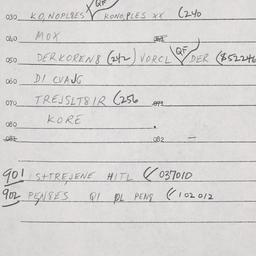 QF
030 KO,NOPL8ES KONOPLES XX (240
040 MOX
QF
050 DERKOREN8 (242) VORCL DER ($52246
060 DI CUAJG
070 TREJSLT8IR (256
080 KORE
082 082 —
901 IS+TREJENE HITL ( 037010
902 PEN8ES QI PL PENS (( 102012